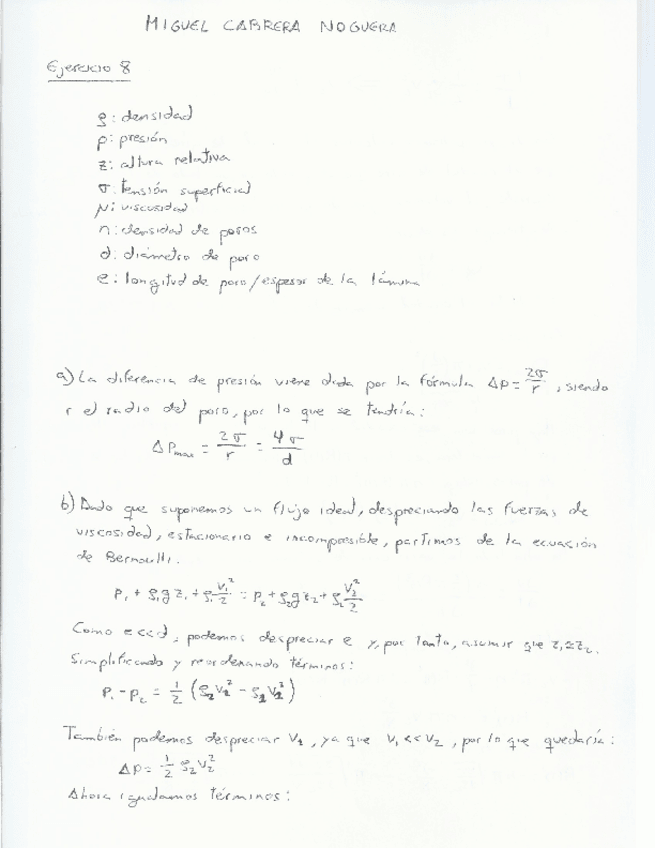 MIGUEL CABRERA NOGUERA
Ejercicio 8
ρ: densidad
p: presión
z: altura relativa
σ: tensión superficial
μ: viscosidad
n: densidad de poros
d: diámetro de poro
e: longitud de poro/espesor de la lámina
a) La diferencia de presión viene dada por la fórmula Δp = 2σ/r, siendo
r el radio del poro, por lo que se tendría:
Δp_max = 2σ/r = 4σ/d
b) Dado que suponemos un flujo ideal, despreciando las fuerzas de
viscosidad, estacionario e incompresible, partimos de la ecuación
de Bernoulli.
p₁ + ρ₁gz₁ + ρ₁ V₁²/2 = p₂ + ρ₂gz₂ + ρ₂ V₂²/2
Como e<<d, podemos despreciar e y, por tanto, asumir que z₁≃z₂.
Simplificando y reordenando términos:
p₁ - p₂ = 1/2
También podemos despreciar V₁, ya que V₁<<V₂, por lo que quedaría:
Δp = 1/2 ρ₂V₂²
Ahora igualamos términos: